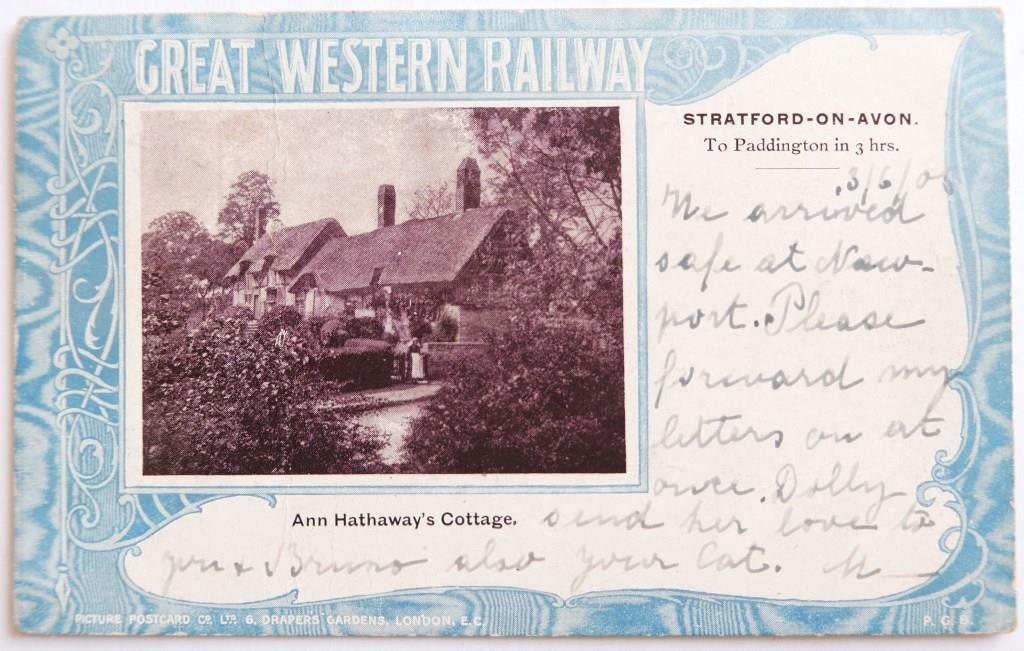 GREAT WESTERN RAILWAY
STRATFORD-ON-AVON.
To Paddington in 3 hrs.
3/6/05
We arrived
safe at New-
port. Please
forward my
letters on at
once. Dolly
Ann Hathaway's Cottage. send her love to
you + Bruno also your Cat. M
PICTURE POSTCARD CO. LTD. 6, DRAPERS GARDENS, LONDON, E.C.